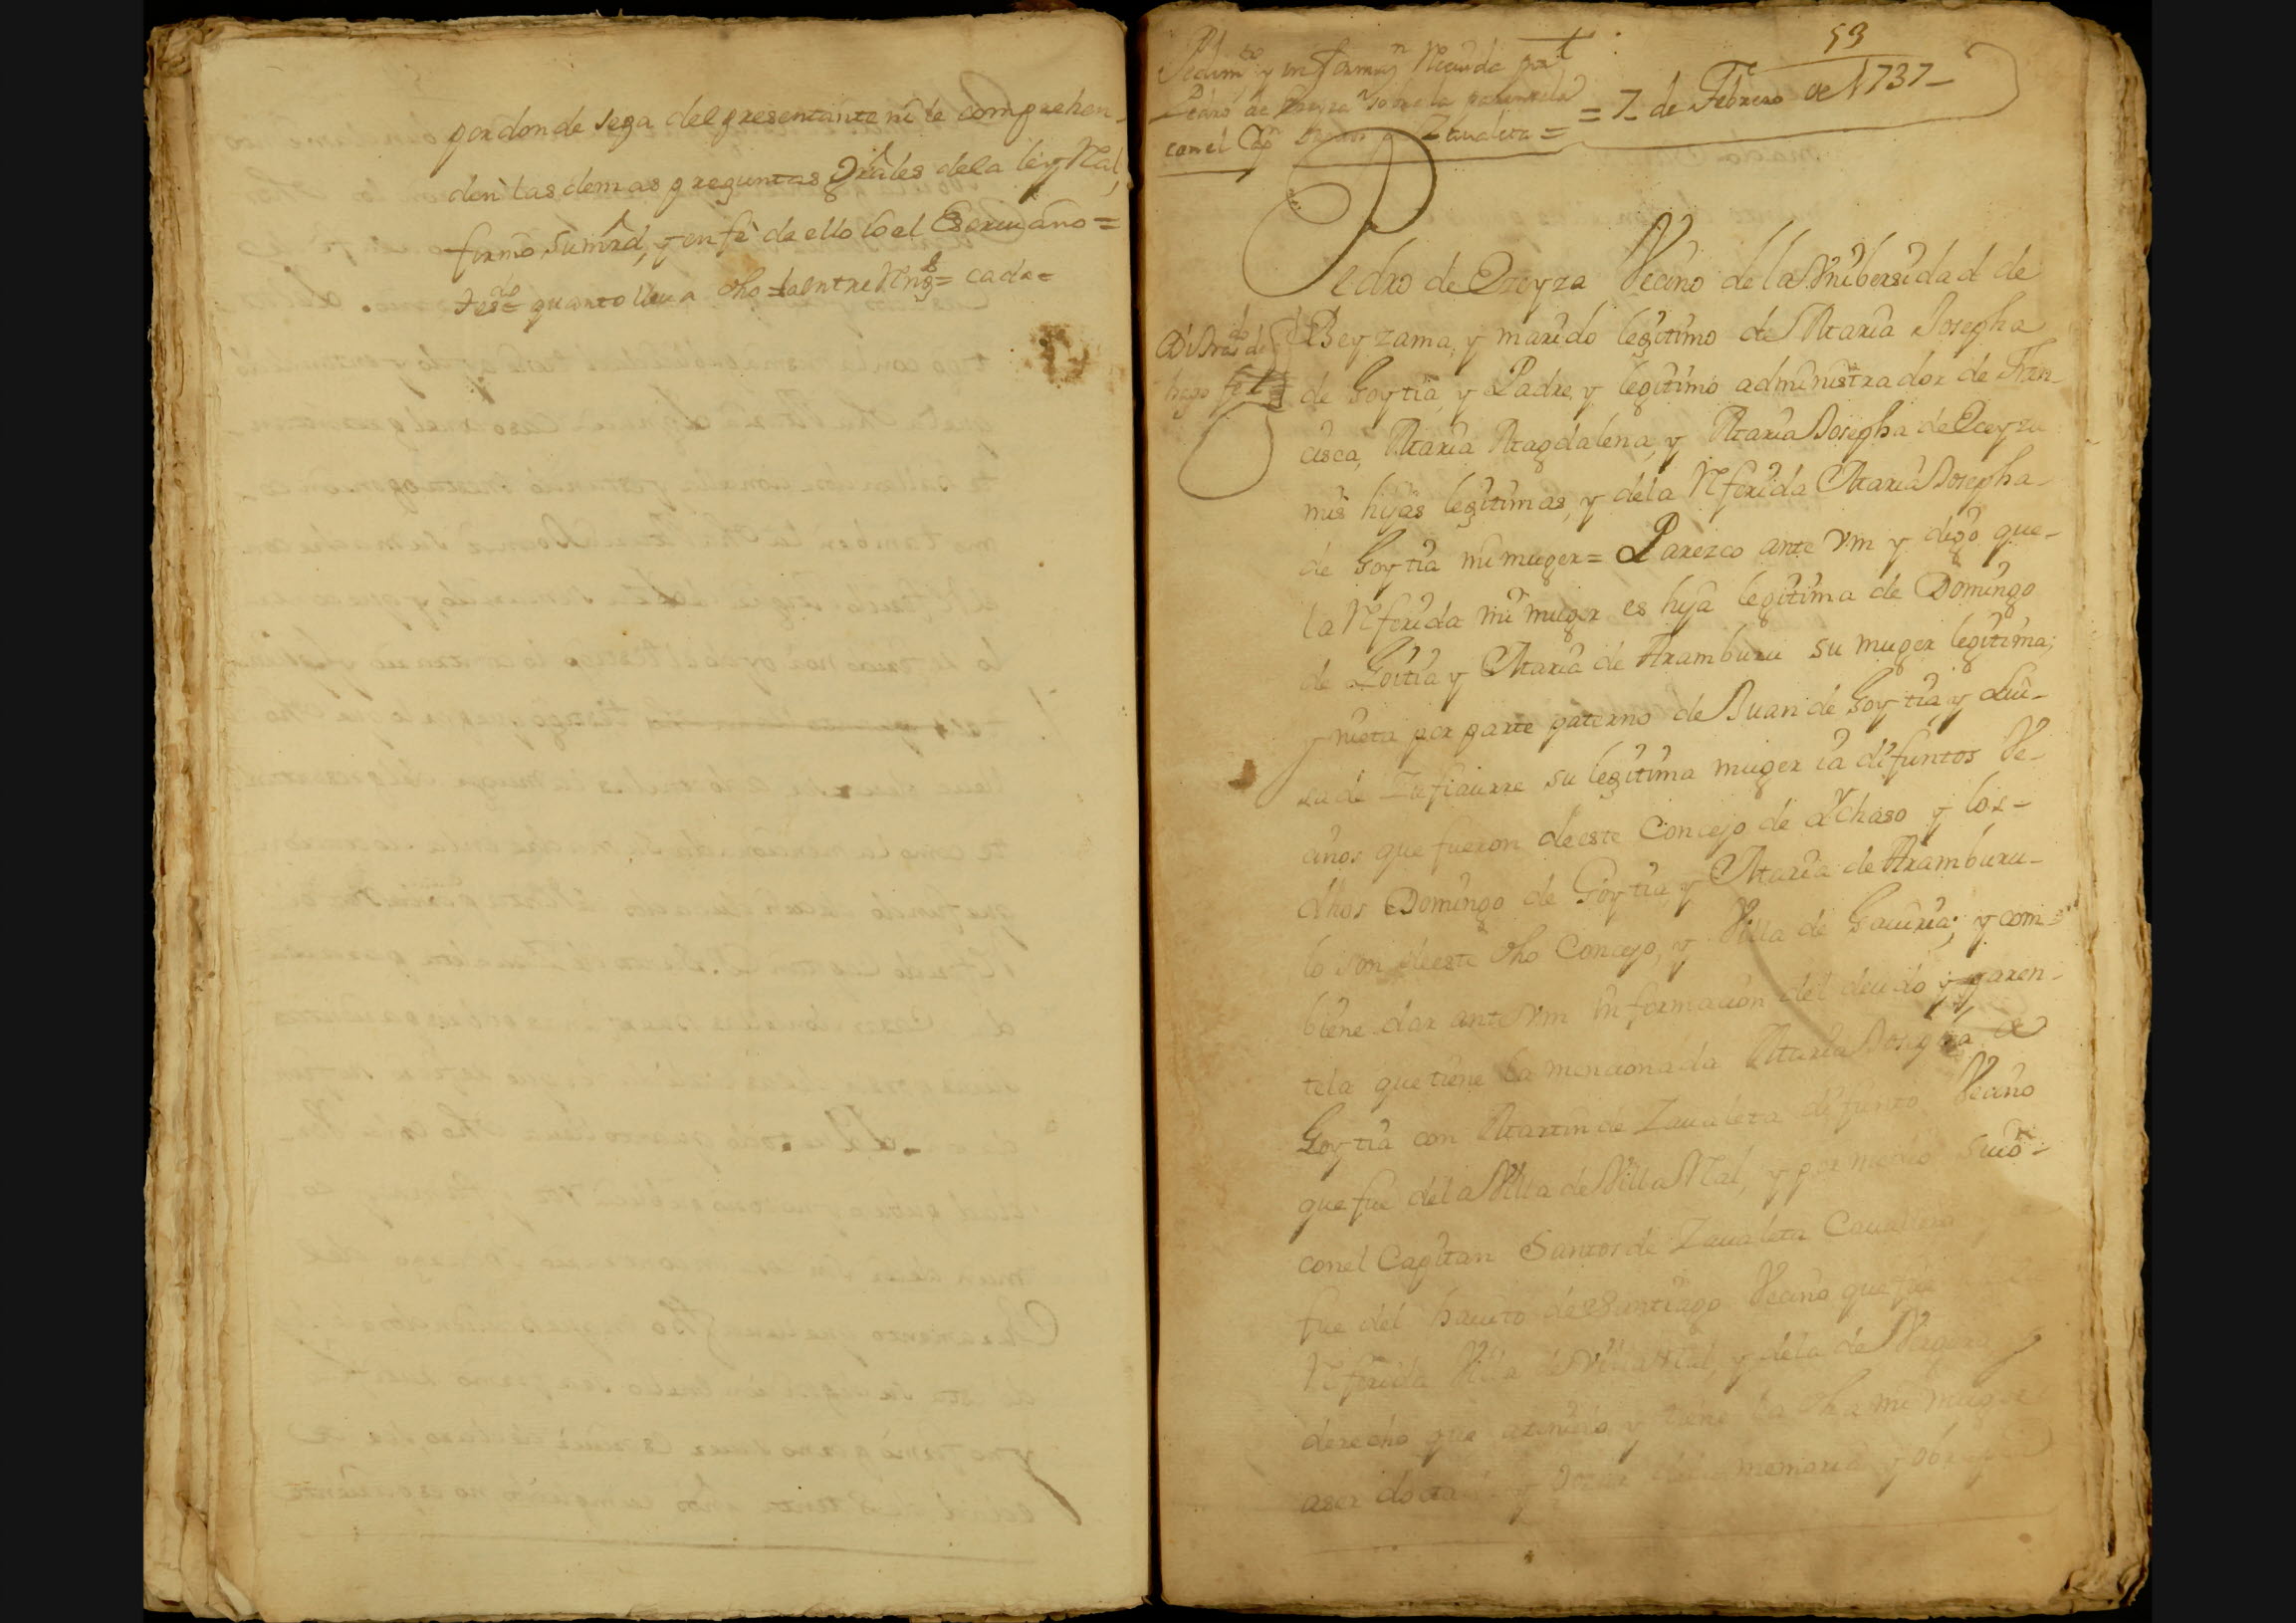 por donde sepa del presentante ni le comprehen-
den las demas preguntas Grâles de la ley Râl,
firmò su mrd, y en fè de ello Io el Escriuano =
tesdo= quanto lleua dho = cada=
53
Pedimto y informon Reciuida por
Pedro de Oreyza sobre la parentela
con el Capn Santos Zaualeta =
= 7- de Febrero de 1737-
Pedro de Oreyza Vecino de la Vnibersidad de
Beyzama, y marido legitimo de Maria Josepha
hago fee
de Goytia, y Padre, y legitimo administrador de Fran-
cisca, Maria Magdalena, y Maria Josepha de Oreyza
mis hijas legitimas, y de la Referida Maria Josepha-
de Goytia mi muger= Parezco ante Vm y digo que-
la Referida mi muger es hija legitima de Domingo
de Goitia y Maria de Aramburu su muger legitima;
y nieta por parte paterno de Juan de Goytia y Lui-
sa de su legitima muger ia difuntos Ve-
cinos que fueron de este Concejo de Achaso y los-
dhos Domingo de Goytia y Maria de Aramburu-
lo son de este dho Concejo, y Villa de Gauiria; y com-
biene dar ante Vm informacion del deudo y paren-
tela que tiene la mencionada Maria Josepha de
Goytia con Martin de Zaualeta difunto Vecino
que fue de la Villa de Villa Râl, y por medio suio-
con el Capitan Santos de Zaualeta Cauallero
fue del hauito de Santiago Vecino que fue
Referida Villa de Villa Râl, y de la de Vergara y
derecho que a tenido, y tiene la dha mi muger
a ser dotada y memoria y obra pia